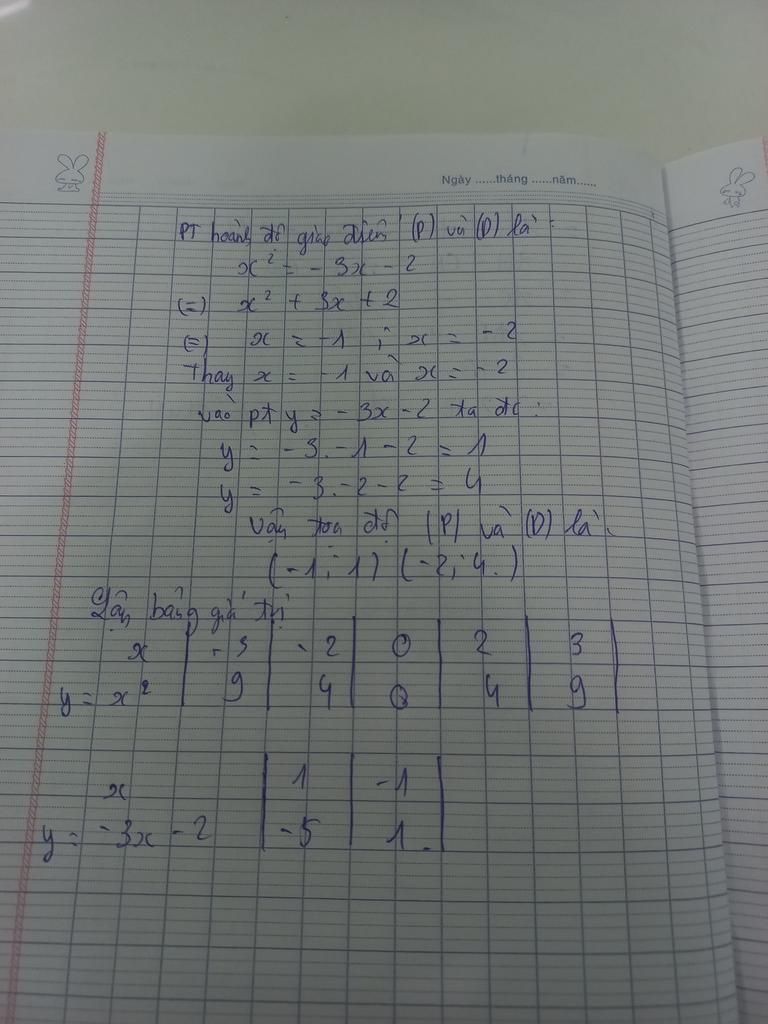 Ngày ......tháng ......năm......
PT hoành độ giao điểm (P) và (D) là :
x² = - 3x - 2
(=) x² + 3x + 2
(=) x = -1 ; x = - 2
Thay x = -1 và x = - 2
vào pt y = - 3x - 2 ta đc :
y = - 3. -1 - 2 = 1
y = - 3. - 2 - 2 = 4
Vậy tọa độ (P) và (D) là.
(-1 ; 1) (-2 ; 4.)
Lập bảng giá trị
x | - 3 | - 2 | 0 | 2 | 3 |
y = x² | 9 | 4 | 0 | 4 | 9 |
x | 1 | -1 |
y = - 3x - 2 | - 5 | 1. |